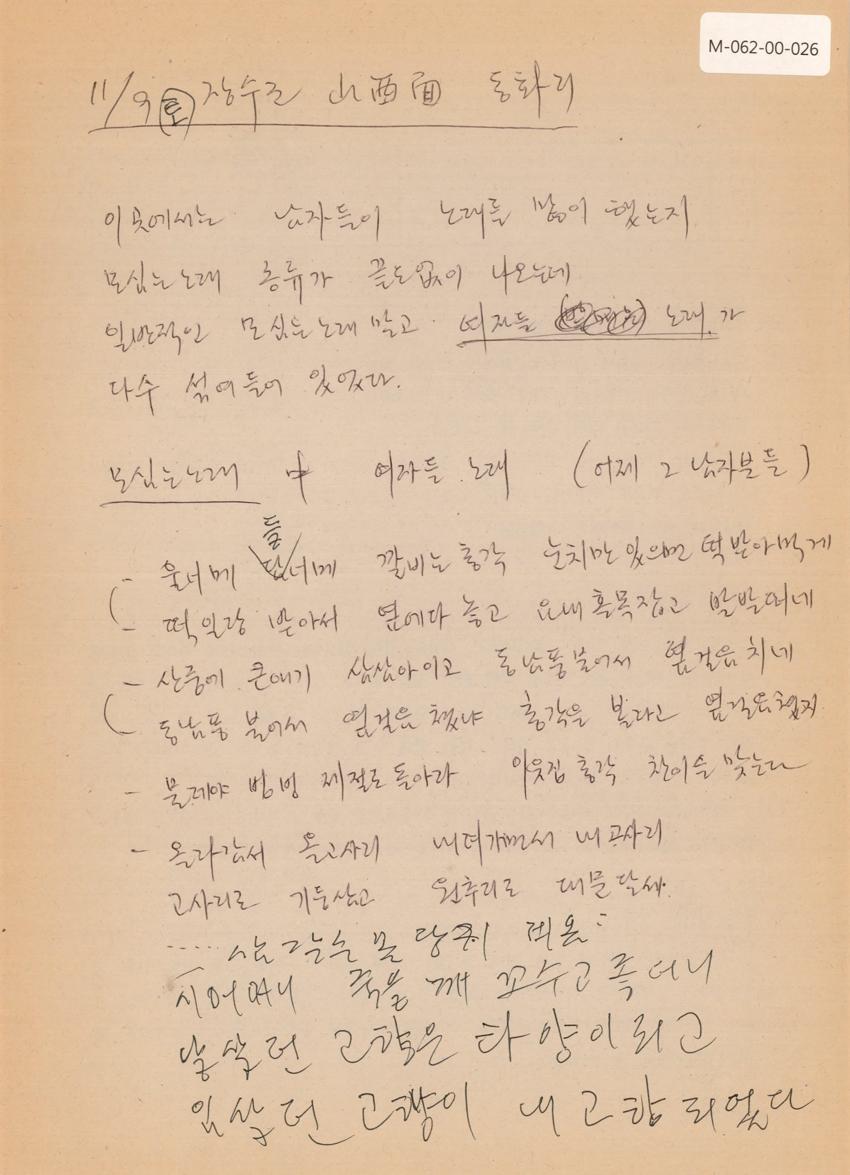 M-062-00-026
11/9 (토) 장수군 山西面 동화리
이곳에서는 남자들이 노래를 많이 했는지
모심는노래 종류가 끝도없이 나오는데
일반적인 모심는노래 말고 여자들 노래가
다수 섞여들어 있었다.
모심는노래 中 여자들 노래 (어제 그 남자분들)
들
- 울너메 담너메 깔비는 총각 눈치만 있으면 떡 받아먹게
- 떡일랑 받아서 옆에다 놓고 요내 홀목잡고 발발떠네
- 산중에 큰애기 삼삼아이고 동남풍불어서 옆걸음치네
동남풍 불어서 옆걸음 쳤냐 총각을 볼라고 옆걸음쳤지
- 물레야 빙빙 제절로 돌아라 이웃집 총각 찬이슬 맞는다
- 올라감서 올고사리 내려가면서 내고사리
고사리로 기둥삼고 원추리로 대문달세.
시어머니 죽을 깨 꼬수고 좋더니
살던 고향은 타양이 되고
살던 고향이 내 고향 되었다